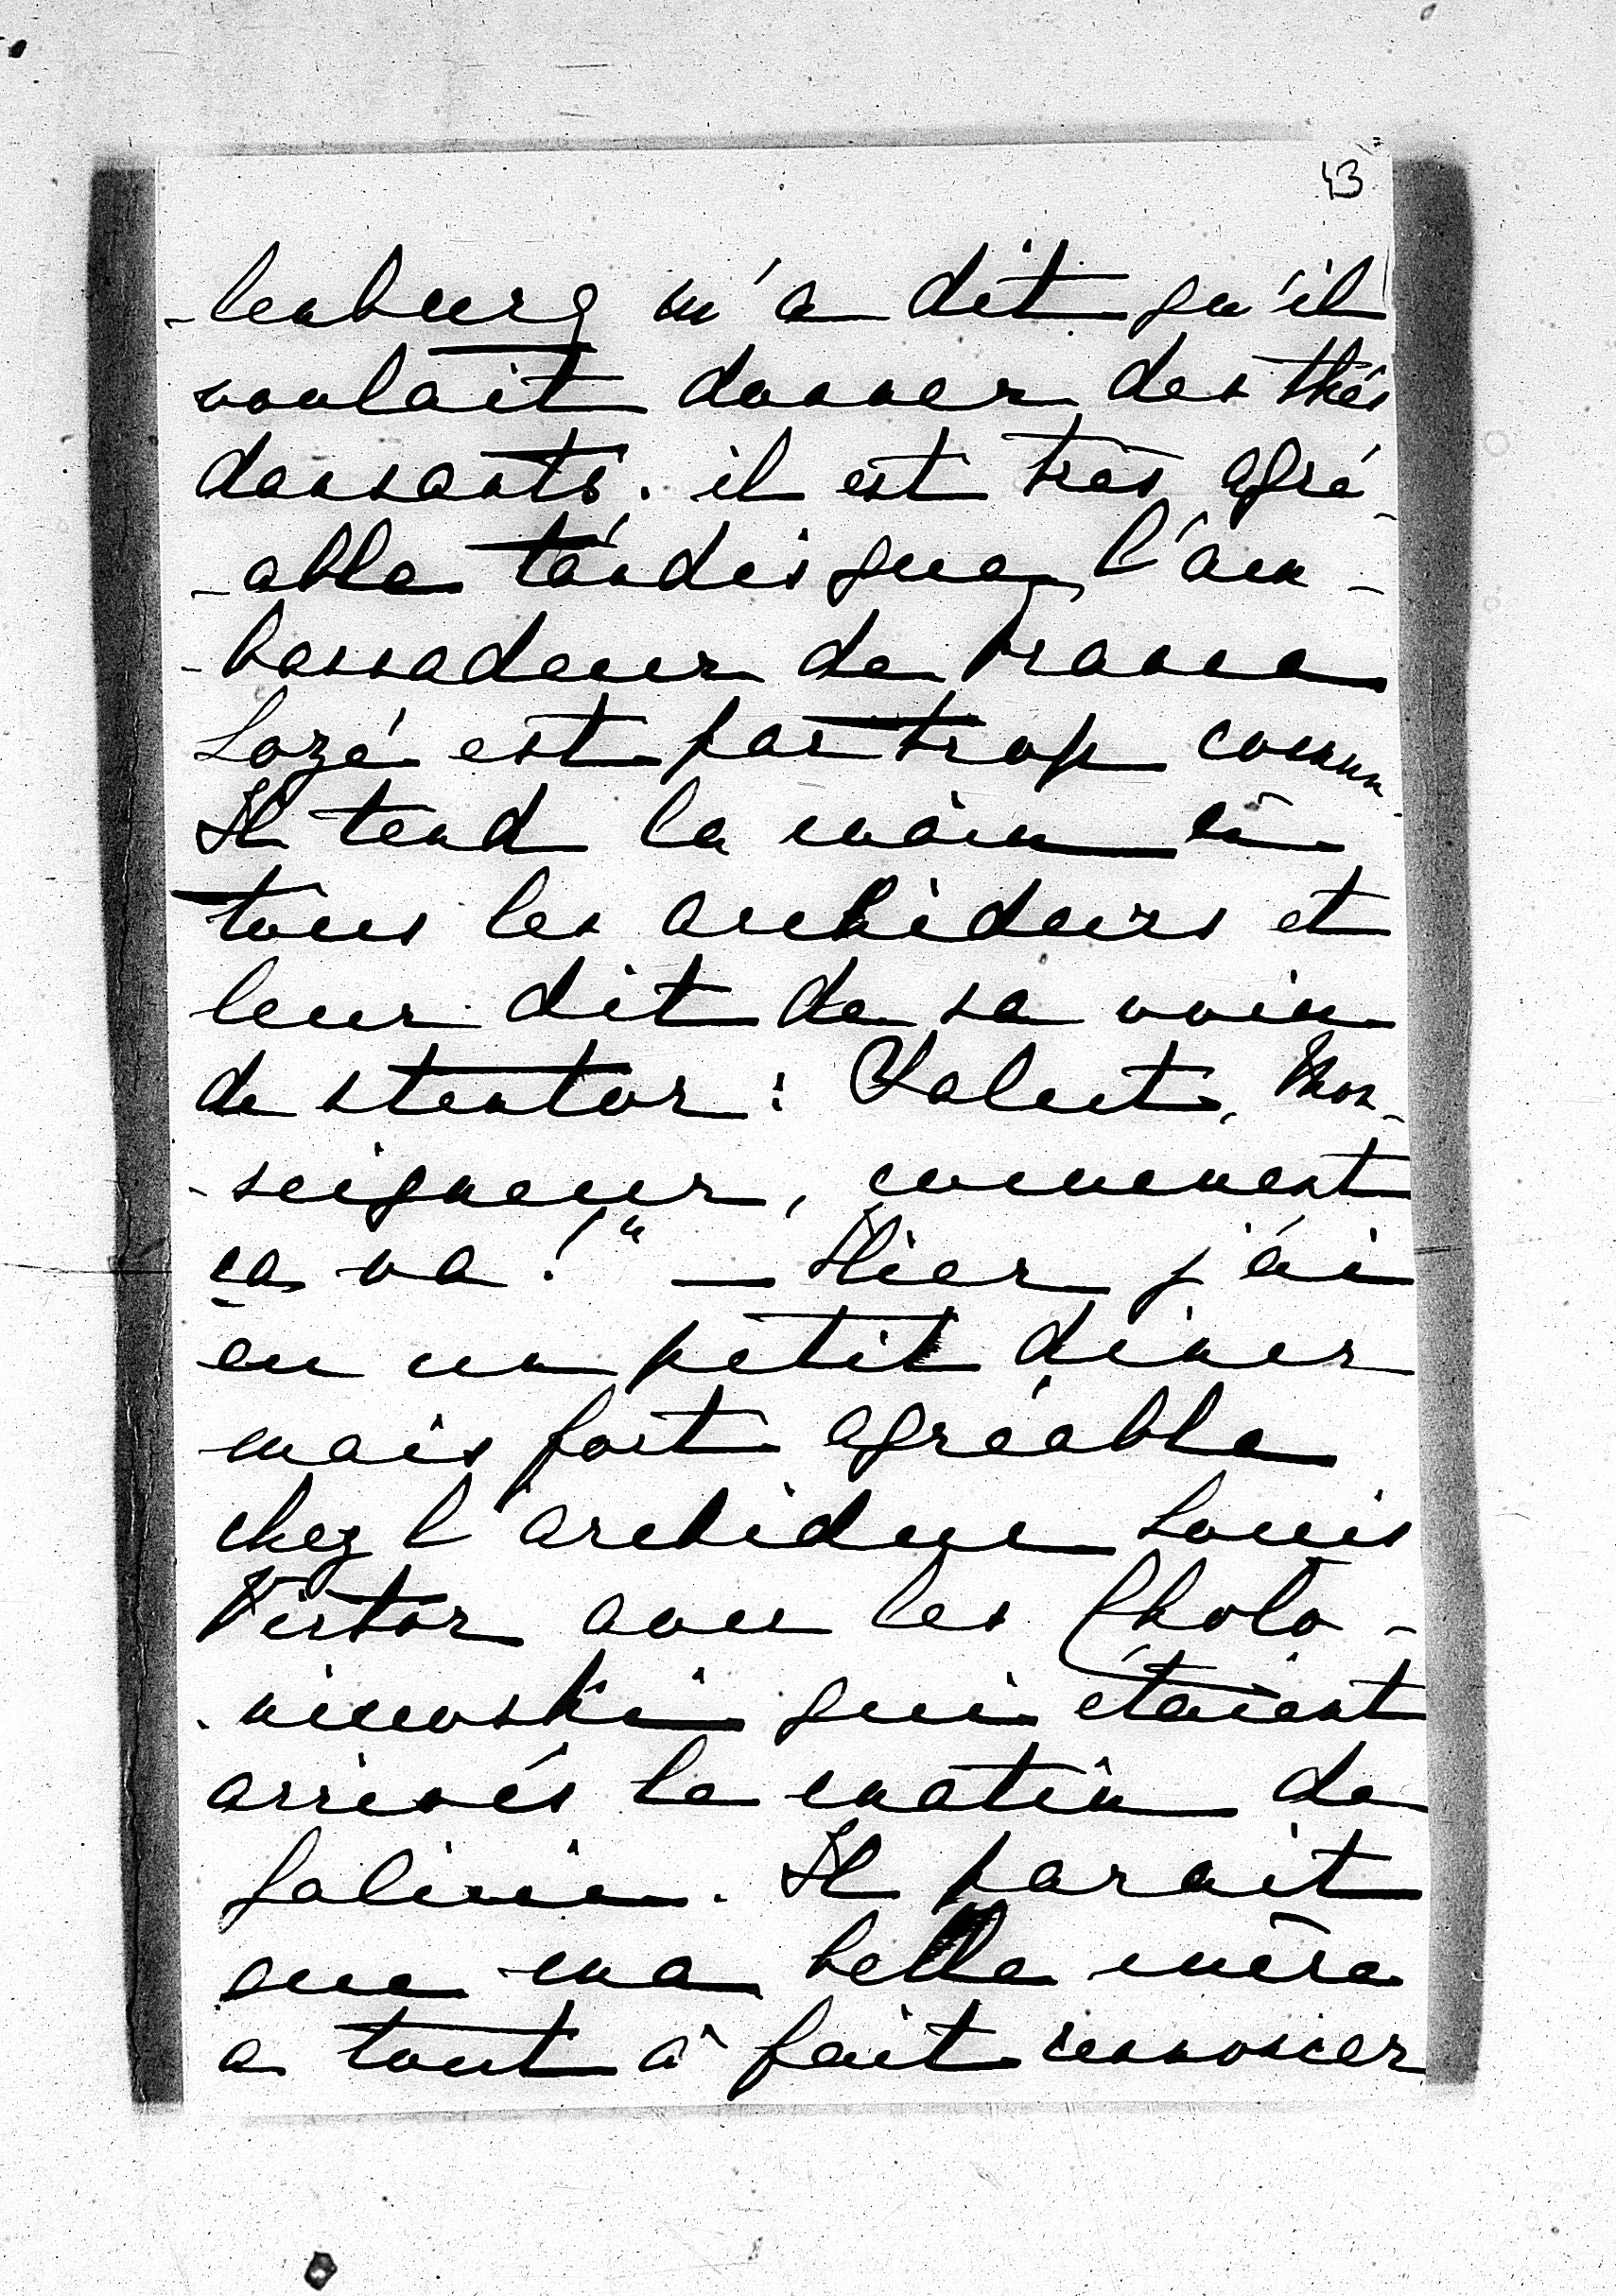 43
-lenburg m'a dit qu'il
voulait donner des thés
dansants. il est très agré-
-able tandis que l'am-
-bassadeur de France
Lozé est par trop commun
Il tend la main à
tous les archiducs et
leur dit de sa voix
de stentor: "Salut, Mon-
-seigneur, comment
ça va!" — Hier j'ai
eu un petit diner
mais fort agréable
chez l'archiduc Louis
Victor avec les Cholo-
-niewski qui étaient
arrivés le matin de
Galicie. Il parait
que ma belle mère
a tout à fait renoncer